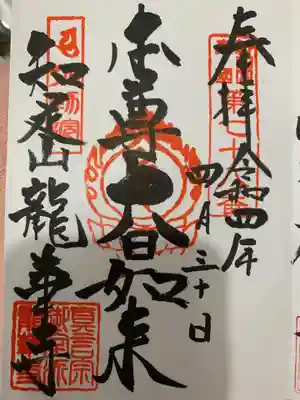 奉拝 令和四年
四月三十日
本尊大日如来
知足山龍華寺
真言宗